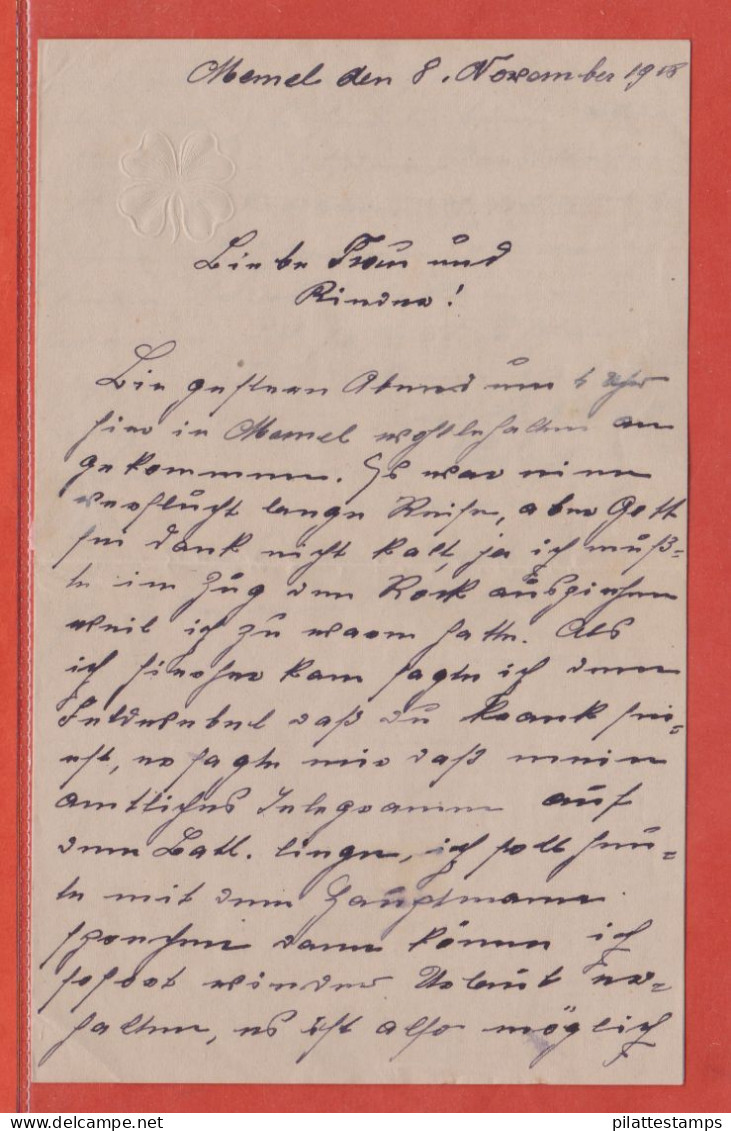 Memel den 8. November 1915
Liebe Frau und
Kinder!
Bin gestern Abend um 4 Uhr
hier in Memel wohlbehalten an
gekommen. Es war eine
verflucht lange Reise, aber Gott
sei dank nicht kalt, ja ich muß=
te im Zug den Rock ausziehen
weil ich zu warm hatte. Als
ich hierher kam sagte ich dem
Feldwebel daß du krank sei=
est, er sagte mir daß mein
amtliches Telegramm auf
dem Batl. liege, ich sollt heu=
te mit dem Hauptmann
sprechen dann könne ich
sofort wieder Urlaub er=
halten, es ist also möglich
pilattestamps